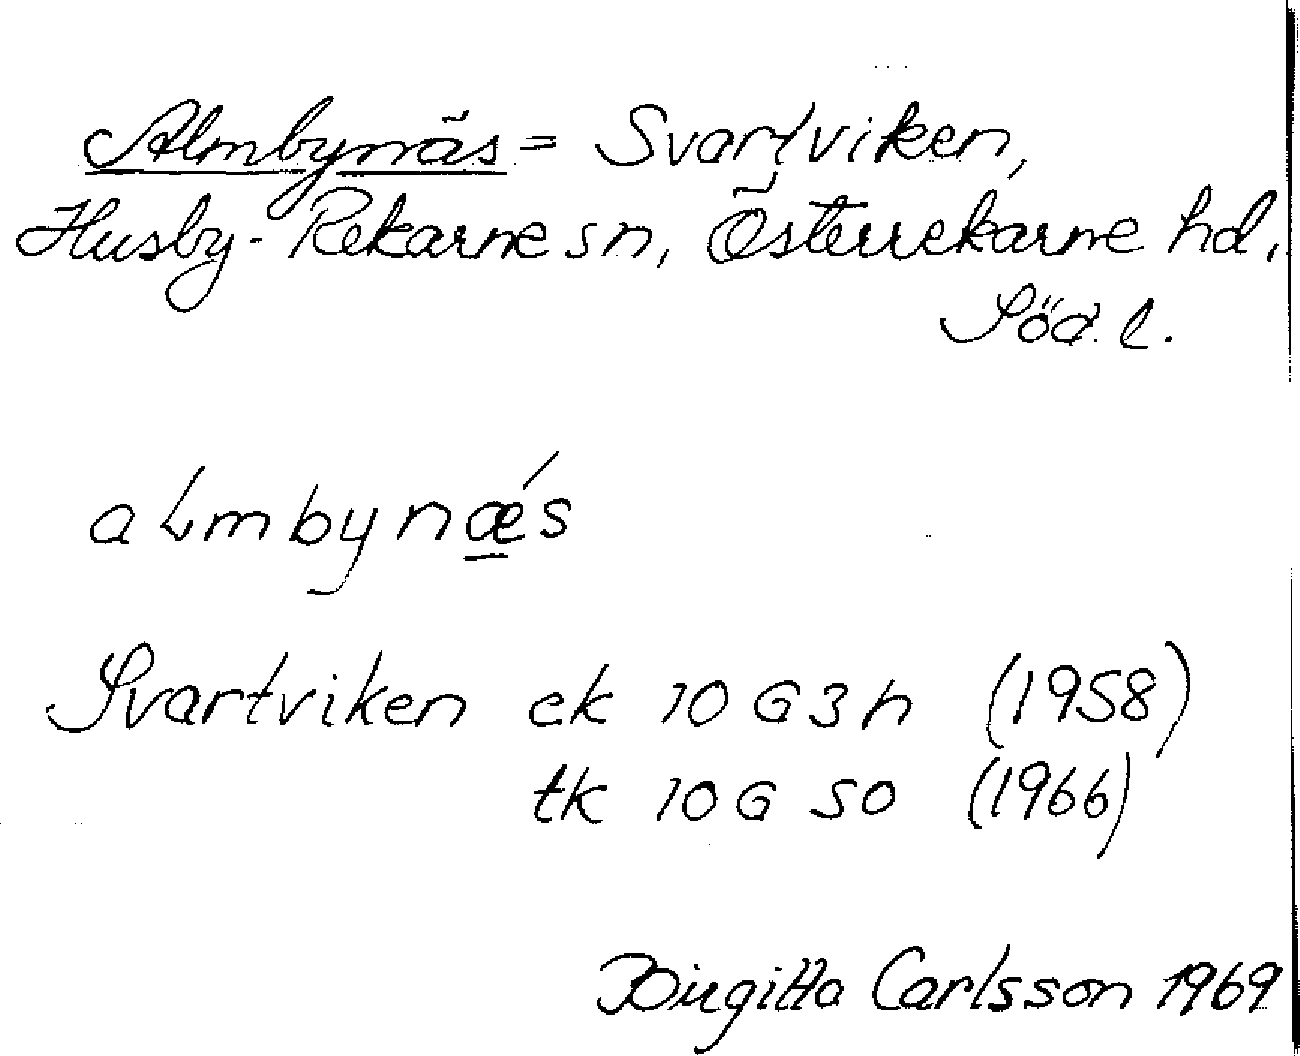 Almbynäs = Svartviken,
Husby-Rekarne sn, Österrekarne hd,
Söd. l.
aLmbynǽs
Svartviken ek 10 G 3 h (1958)
tk 10 G SO (1966)
Birgitta Carlsson 1969